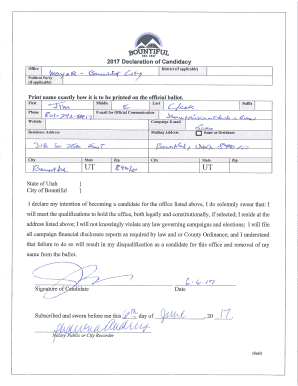 BOUNTIFUL
2017 Declaration of Candidacy
Office District (if applicable)
Mayor - Bountiful City
Political Party
(if applicable)
Print name exactly how it is to be printed on the official ballot.
First Middle Last Suffix
Jim E Clark
Phone E-mail for Official Communication
Website Campaign E-mail
Residence Address Mailing Address Same as Residence
Bountiful, Utah
City State Zip City State Zip
Bountiful UT UT
State of Utah )
City of Bountiful )
I declare my intention of becoming a candidate for the office listed above, I do solemnly swear that: I
will meet the qualifications to hold the office, both legally and constitutionally, if selected; I reside at the
address listed above; I will not knowingly violate any law governing campaigns and elections; I will file
all campaign financial disclosure reports as required by law and or County Ordinance; and I understand
that failure to do so will result in my disqualification as a candidate for this office and removal of my
name from the ballot.
Signature of Candidate Date
Subscribed and sworn before me this 6th day of June, 2017
Notary Public or City Recorder
(Seal)